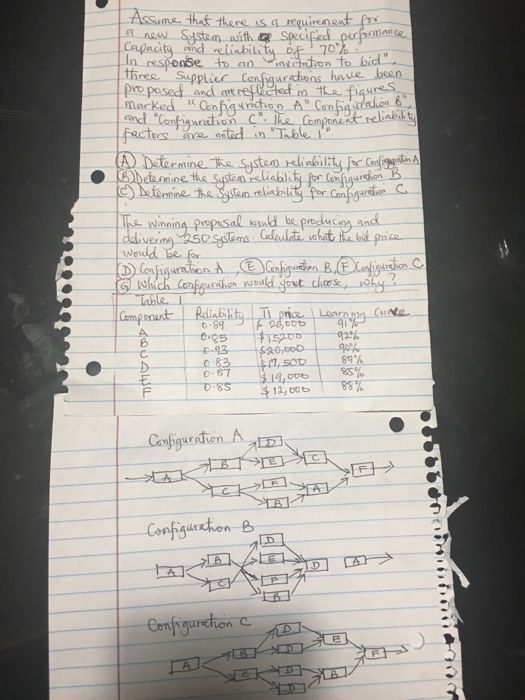 Assume that there is a requirement for
a new system with specified performance
capacity and reliability of 70%.
In response to an "invitation to bid",
three supplier configurations have been
proposed and are reflected in the figures
marked "Configuration A" "Configuration B",
and "Configuration C". The component reliability
factors are noted in "Table 1"
(A) Determine the system reliability for Configuration A
(B) Determine the system reliability for Configuration B
(C) Determine the system reliability for Configuration C
The winning proposal would be producing and
delivering 250 systems. Calculate what the bid price
would be for
(D) Configuration A, (E) Configuration B, (F) Configuration C
(G) Which Configuration would you choose, why?
Table 1
Component Reliability T1 price Learning Curve
A 0.89 $ 28,000 91%
B 0.85 $15200 92%
C 0.93 $20,000 90%
D 0.83 $17,500 89%
E 0.87 $19,000 85%
F 0.85 $12,000 88%
Configuration A
D
B E C
A F
C F A
B
Configuration B
D
B E
A D A
C F
A
Configuration C
D
B D E
A F
C D B
D